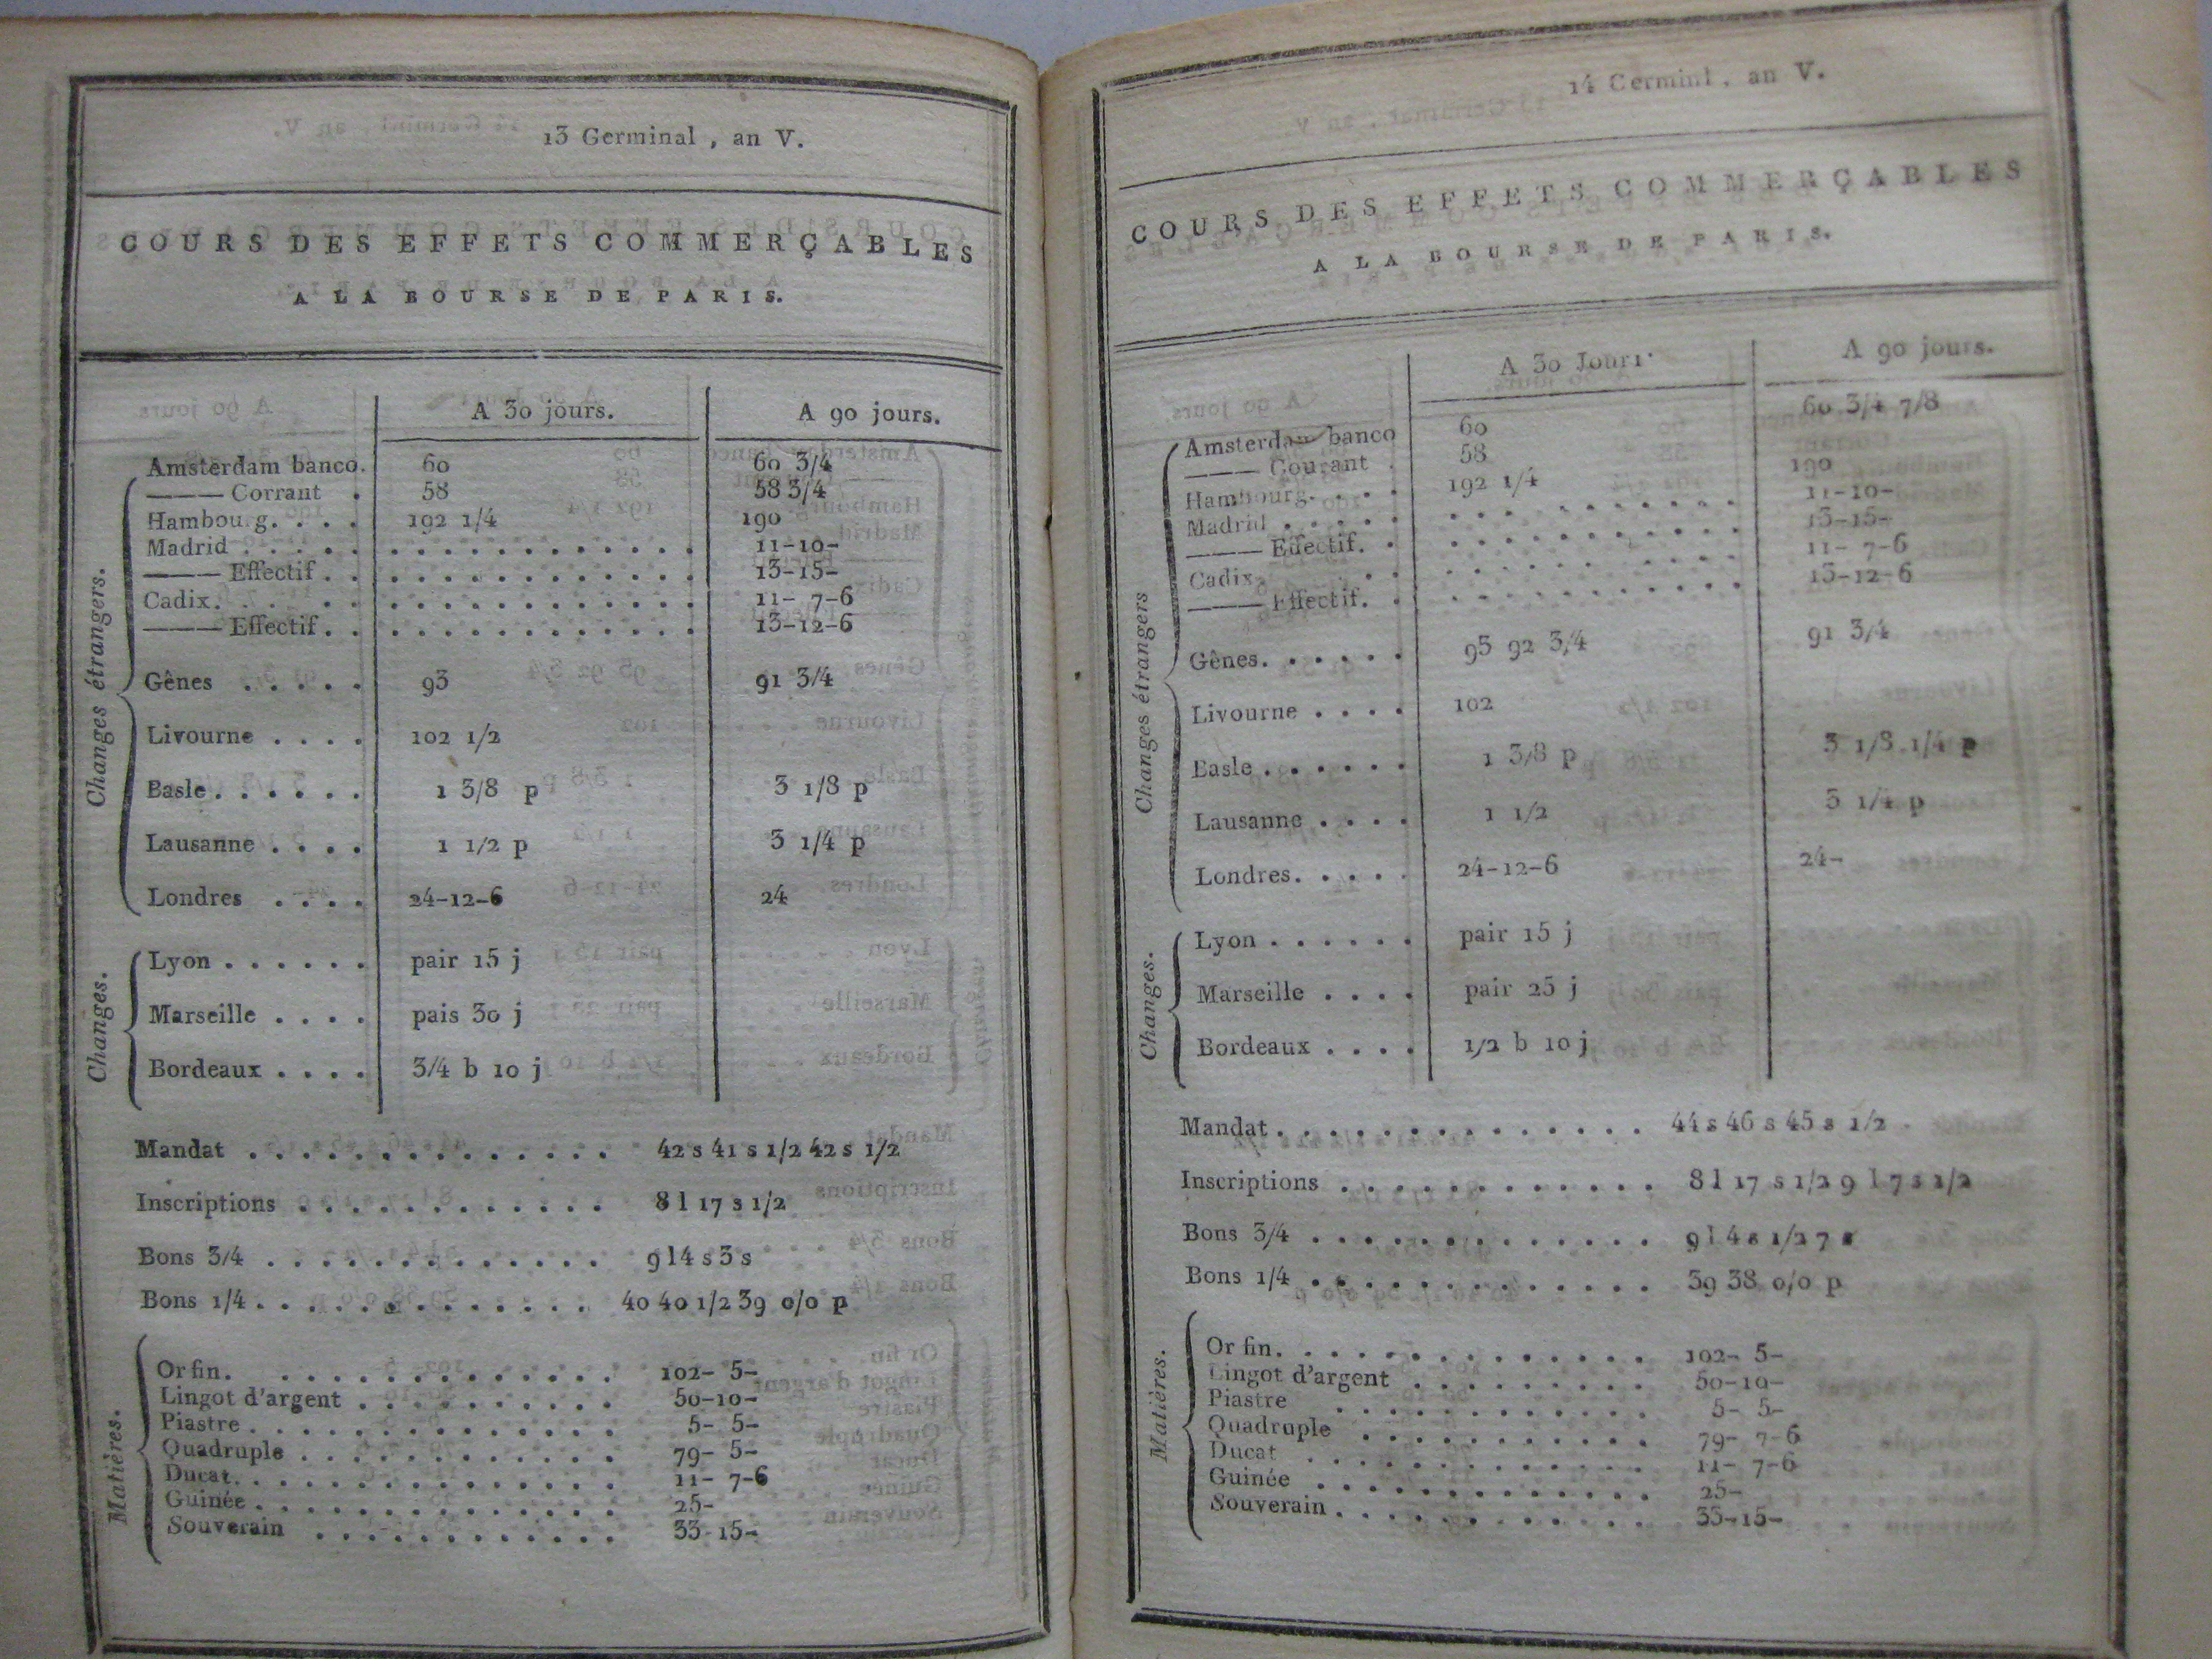 13 Germinal, an V.
COURS DES EFFETS COMMERÇABLES
A LA BOURSE DE PARIS.
A 30 jours. A 90 jours.
Changes étrangers.
Amsterdam banco. 60 60 3/4
——— Corrant . 58 58 3/4
Hambourg. . . . 192 1/4 190
Madrid . . . . . . . . . . . . . . . . . 11-10-
——— Effectif . . . . . . . . . . . . . . 13-15-
Cadix. . . . . . . . . . . . . . . . . 11- 7-6
——— Effectif . . . . . . . . . . . . . . 13-12-6
Gênes . . . . . 93 91 3/4
Livourne . . . . 102 1/2
Basle . . . . . . 1 3/8 p 3 1/8 p
Lausanne . . . . 1 1/2 p 3 1/4 p
Londres . . . . 24-12-6 24
Changes.
Lyon . . . . . . pair 15 j
Marseille . . . . pais 30 j
Bordeaux . . . . 3/4 b 10 j
Mandat . . . . . . . . . . . . . . 42 s 41 s 1/2 42 s 1/2
Inscriptions . . . . . . . . . . . . 8 l 17 s 1/2
Bons 3/4 . . . . . . . . . . . . . 9 l 4 s 3 s
Bons 1/4 . . . . . . . . . . . . . 40 40 1/2 39 0/0 p
Matières.
Or fin. . . . . . . . . . . . . . 102- 5-
Lingot d'argent . . . . . . . . . . 50-10-
Piastre . . . . . . . . . . . . . . 5- 5-
Quadruple . . . . . . . . . . . . 79- 5-
Ducat. . . . . . . . . . . . . . . 11- 7-6
Guinée . . . . . . . . . . . . . . 25-
Souverain . . . . . . . . . . . . 33-15-
14 Germinl, an V.
COURS DES EFFETS COMMERÇABLES
A LA BOURSE DE PARIS.
A 30 Jours A 90 jours.
Changes étrangers
60 3/4 7/8
Amsterdam banco 60
——— Courant . 58
Hambourg. . . . 192 1/4 190
Madrid . . . . . . . . . . . . . . . . 11-10-
——— Effectif. . . . . . . . . . . . . 13-15-
Cadix . . . . . . . . . . . . . . . 11- 7-6
——— Effectif. . . . . . . . . . . . . 13-12-6
Gênes. . . . . . 93 92 3/4 91 3/4
Livourne . . . . 102
Basle . . . . . . 1 3/8 p 3 1/8 1/4 p
Lausanne . . . . 1 1/2 3 1/4 p
Londres. . . . . 24-12-6 24-
Changes.
Lyon . . . . . . pair 15 j
Marseille . . . . pair 25 j
Bordeaux . . . . 1/2 b 10 j
Mandat . . . . . . . . . . . . . . 44 s 46 s 45 s 1/2
Inscriptions . . . . . . . . . . . . 8 l 17 s 1/2 9 l 7 s 1/2
Bons 3/4 . . . . . . . . . . . . . 9 l 4 s 1/2 7 s
Bons 1/4 . . . . . . . . . . . . . 39 38 0/0 p
Matières.
Or fin. . . . . . . . . . . . . . 102- 5-
Lingot d'argent . . . . . . . . . 50-10-
Piastre . . . . . . . . . . . . 5- 5-
Quadruple . . . . . . . . . . . 79- 7-6
Ducat . . . . . . . . . . . . . 11- 7-6
Guinée . . . . . . . . . . . . . 25-
Souverain . . . . . . . . . . . . 33-15-